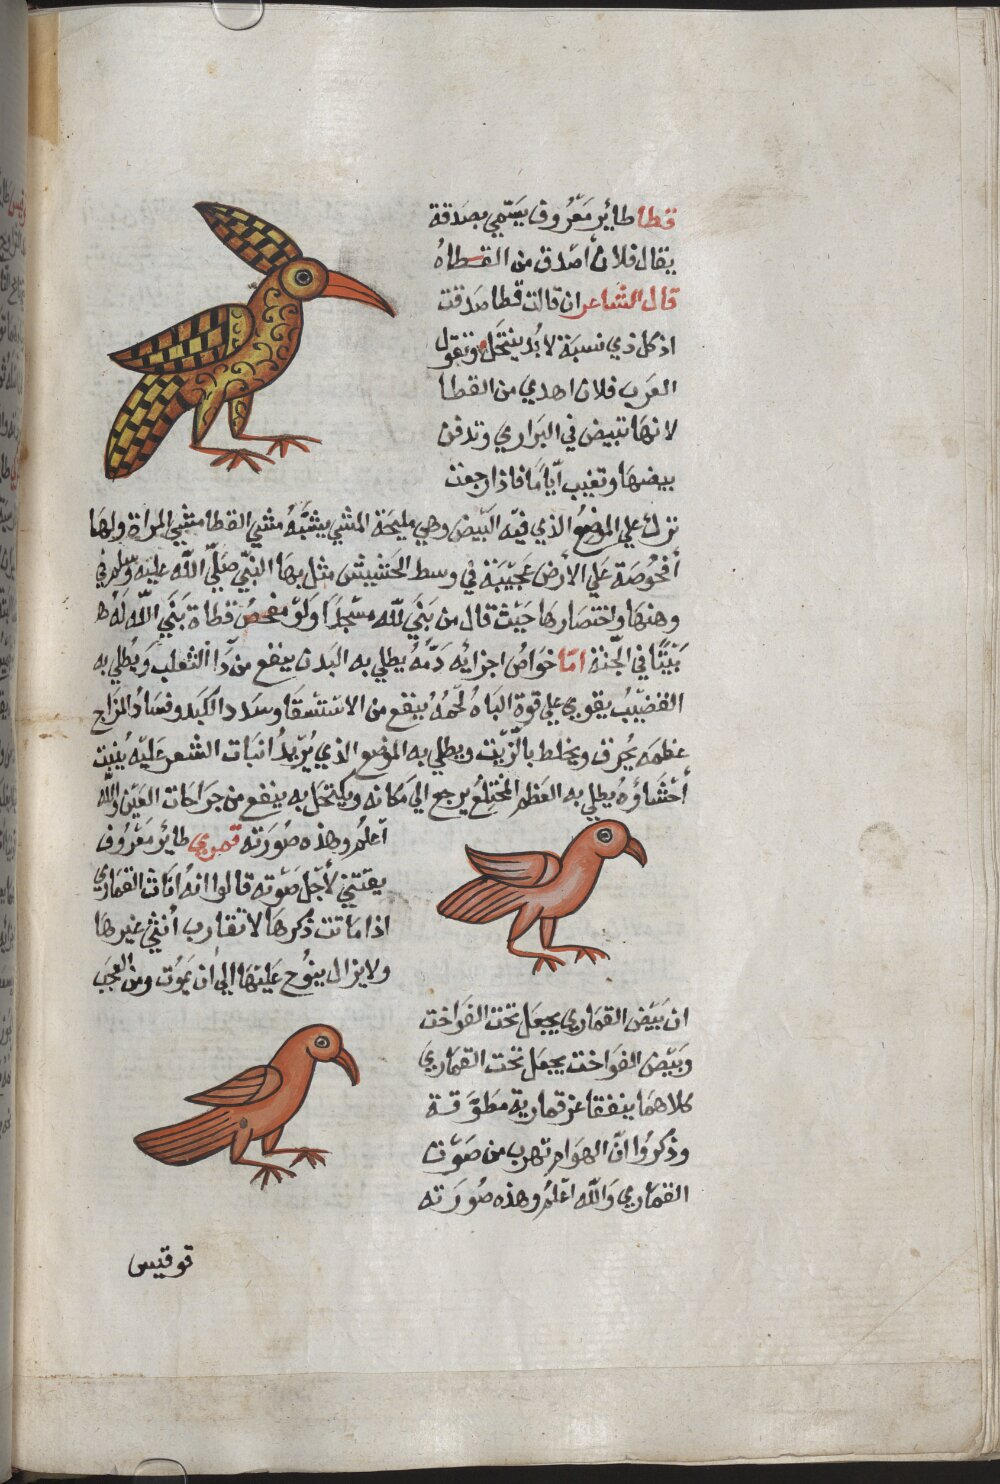 قطا طائر معروف يسمي بصدقة
يقال فلان أصدق من القسطاه
قال الشاعر ان قالت قطا صدقت
اذ كل ذي نسبة لا بد ينتحل وتقول
العرب فلان اهدي من القطا
لانها تبيض في البراري وتدفن
بيضها وتغيب أياما فاذا رجعت
نزلت علي الموضع الذي فيه البيض وهي مليحة المشي يشبه مشي القطا مشي المراة ولها
أفحوصة علي الأرض عجيبة في وسط الحشيش مثل بها النبي صلي الله عليه وسلم في
وهنها واختصارها حيث قال من بني لله مسجدا ولو مفحص قطاة بني الله له
بيتا في الجنة اما خواص اجزايه دمه يطلي به البدن ينفع من دا الثعلب ويطلي به
القضيب يقوي علي قوة الباه لحمه ينفع من الاستسقا وسدد الكبد وفساد المزاج
عظمه يحرق ويخلط بالزيت ويطلي به الموضع الذي يريد انبات الشعر عليه ينبت
أحشاؤه يطلي به العظم المختلع يرجع الي مكانه ويكتحل به ينفع من جراحات العين والله
أعلم وهذه صورته قمري طائر معروف
يقتني لأجل صوته قالوا انه اناث القماري
اذا ماتت ذكرها لا تقارب أنثي غيرها
ولا يزال ينوح عليها الي ان يموت ومن العجب
ان بيض القماري يجعل تحت الفواخت
وبيض الفواخت يجعل تحت القماري
كلاهما ينفقا عن قمارية مطوقة
وذكروا ان الهوام تهرب من صوت
القماري والله أعلم وهذه صورته
قوقيس